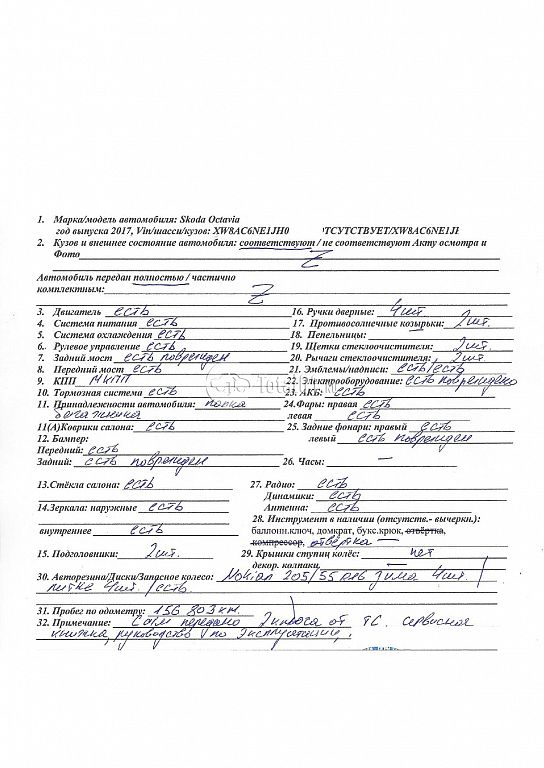 1. Марка/модель автомобиля: Skoda Octavia
год выпуска 2017, Vin/шасси/кузов: XW8AC6NE1JH0 ОТСУТСТВУЕТ/XW8AC6NE1JH
2. Кузов и внешнее состояние автомобиля: соответствуют / не соответствуют Акту осмотра и
Фото Z
Автомобиль передан полностью / частично
комплектным: Z
3. Двигатель есть 16. Ручки дверные: 4шт
4. Система питания есть 17. Противосолнечные козырьки: 2шт.
5. Система охлаждения есть 18. Пепельницы: —
6. Рулевое управление есть 19. Щетки стеклоочистителя: 2шт.
7. Задний мост есть поврежден 20. Рычаги стеклоочистителя: 2шт.
8. Передний мост есть 21. Эмблемы/надписи: есть/есть
9. КПП АКПП 22. Электрооборудование: есть повреждено
10. Тормозная система есть 23. АКБ: есть
11. Принадлежности автомобиля: полка 24.Фары: правая есть
багажника левая есть
11(А)Коврики салона: есть 25. Задние фонари: правый есть
12. Бампер: левый есть поврежден
Передний: есть
Задний: есть поврежден 26. Часы: —
13.Стёкла салона: есть 27. Радио: есть
Динамики: есть
14.Зеркала: наружные есть Антенна: есть
28. Инструмент в наличии (отсутств.- вычеркн.):
внутреннее есть баллонн.ключ, домкрат, букс.крюк, отвёртка,
компрессор, отвёртка —
15. Подголовники: 2шт. 29. Крышки ступиц колёс: нет
декор. колпаки,
30. Авторезина/Диски/Запасное колесо: Nokian 205/55 R16 зима 4шт.
литые 4шт. /есть
31. Пробег по одометру: 156 803 км.
32. Примечание: С а/м передано 2 ключа от ТС. сервисная
книжка, руководство по эксплуатации.